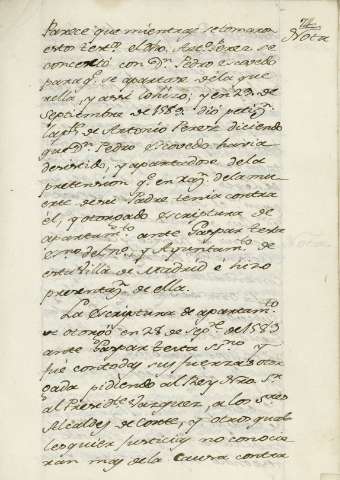 74
Nota
Parece que mientras se tomaron
estos test.os el dho. Ant.o Perez se
concertó con D.n Pedro Escovedo
para q.e se apartase de la que
rella, y assi lo hizo; y en 29 de
Septiembre de 1589. dió petiz.n
la p.te de Antonio Perez diciendo
que D.n Pedro Escovedo havia
desistido, y apartadose de la
pretension q.e en raz.n de la mu
erte de su Padre tenia contra
él, y otorgado escriptura de
apartam.to ante Gaspar testa
ess.no del n.o y Ayuntam.to de
esta Villa de Madrid e hizo
presentaz.n de ella.
La Escriptura de apartam.to
se otorgó en 28 de Sep.e de 1589
ante Gaspar testa ss.no y
fue con todas sus fuerzas otor
gada pidiendo al Rey Nro S.r
al Presid.te Vazquez, a los S.res
Alcaldes de Corte, y otros quales
lesquier Justicias no conocie
ran mas de la Causa contra